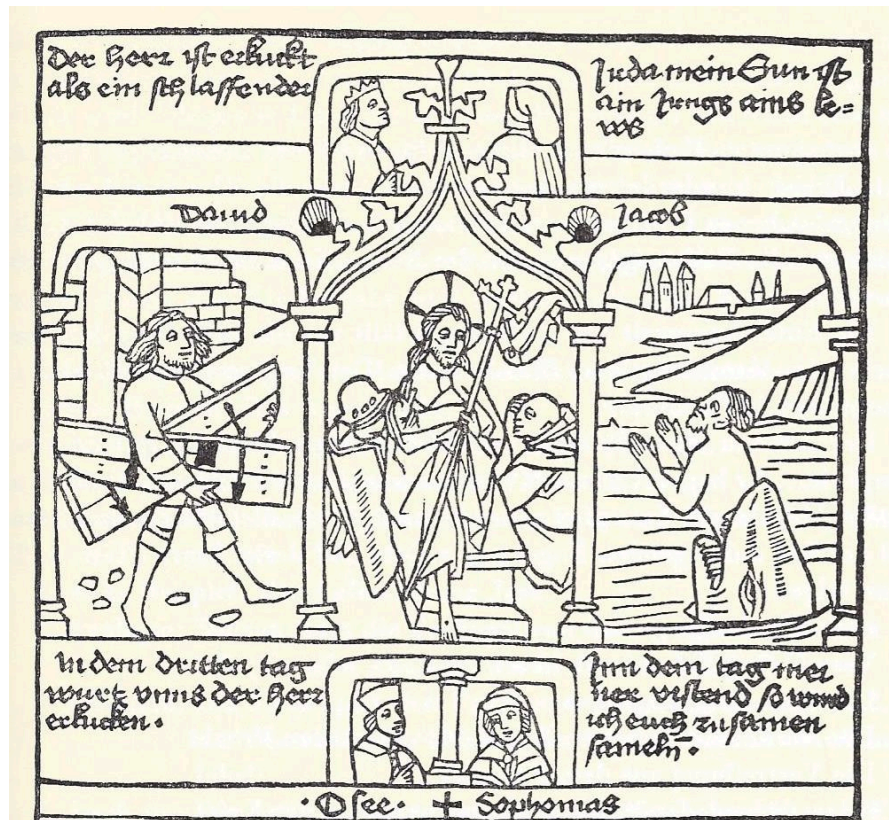 Der herr ist erkuckt
als ein schlaffender
Juda mein Sun ist
ain Jungs ains le=
ws
Dauid
Jacob
In dem dritten tag
wurtz vnns der herr
erkucken.
Inn dem tag mei
ner vrstend so wurd
ich euch zu samen
sameln̄.
· Osee · + Sophonias